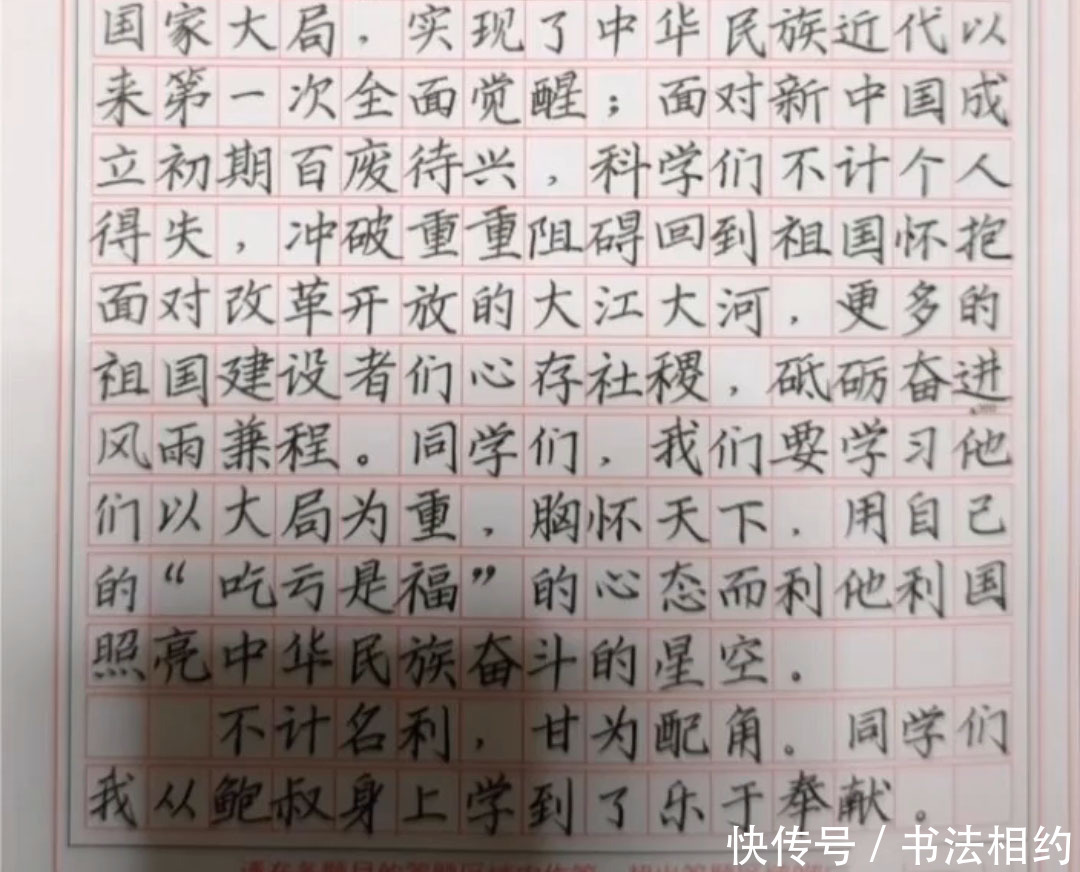 国家大局，实现了中华民族近代以
来第一次全面觉醒；面对新中国成
立初期百废待兴，科学们不计个人
得失，冲破重重阻碍回到祖国怀抱
面对改革开放的大江大河，更多的
祖国建设者们心存社稷，砥砺奋进
风雨兼程。同学们，我们要学习他
们以大局为重，胸怀天下，用自己
的“吃亏是福”的心态而利他利国
照亮中华民族奋斗的星空。
不计名利，甘为配角。同学们
我从鲍叔身上学到了乐于奉献。
快传号 / 书法相约